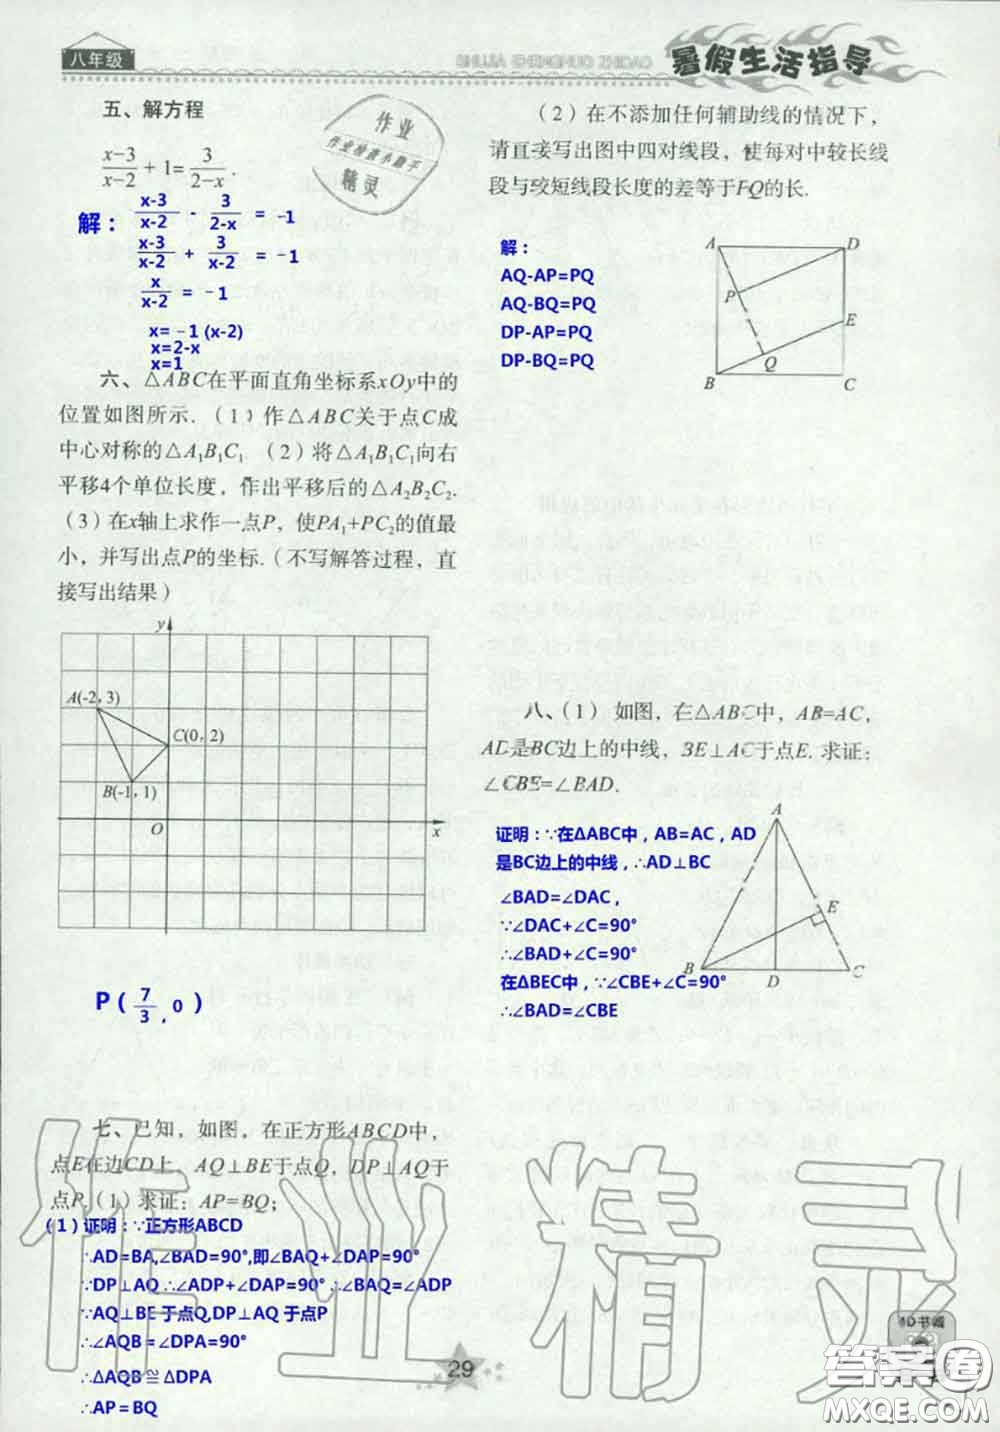 八年级
SHUJIA SHENGHUO ZHIDAO
暑假生活指导
五、解方程
x-3/x-2 + 1 = 3/2-x .
解：x-3/x-2 - 3/2-x = -1
x-3/x-2 + 3/x-2 = -1
x/x-2 = -1
x= -1 (x-2)
x=2-x
x=1
作业
精灵
六、△ABC在平面直角坐标系xOy中的
位置如图所示.（1）作△ABC关于点C成
中心对称的△A₁B₁C₁.（2）将△A₁B₁C₁向右
平移4个单位长度，作出平移后的△A₂B₂C₂.
（3）在x轴上求作一点P，使PA₁+PC₂的值最
小，并写出点P的坐标.（不写解答过程，直
接写出结果）
y
A(-2，3)
C(0，2)
B(-1，1)
O
x
P( 7/3 , 0 )
七、已知，如图，在正方形ABCD中，
点E在边CD上，AQ⊥BE于点Q，DP⊥AQ于
点P.（1）求证：AP=BQ；
(1) 证明：∵正方形ABCD
∴AD=BA,∠BAD=90°,即∠BAQ+∠DAP=90°
∵DP⊥AQ ∴∠ADP+∠DAP=90° ∴∠BAQ=∠ADP
∵AQ⊥BE 于点Q,DP⊥AQ 于点P
∴∠AQB=∠DPA=90°
∴ΔAQB≅ΔDPA
∴AP=BQ
（2）在不添加任何辅助线的情况下，
请直接写出图中四对线段，使每对中较长线
段与较短线段长度的差等于PQ的长.
解：
AQ-AP=PQ
AQ-BQ=PQ
DP-AP=PQ
DP-BQ=PQ
A
D
P
E
Q
B
C
八、（1）如图，在△ABC中，AB=AC，
AD是BC边上的中线，BE⊥AC于点E. 求证：
∠CBE=∠BAD.
证明：∵在ΔABC中，AB=AC，AD
是BC边上的中线，∴AD⊥BC
∠BAD=∠DAC，
∵∠DAC+∠C=90°
∴∠BAD+∠C=90°
在ΔBEC中，∵∠CBE+∠C=90°
∴∠BAD=∠CBE
A
E
B
D
C
29
作业精灵
答案圈
MXQE.COM